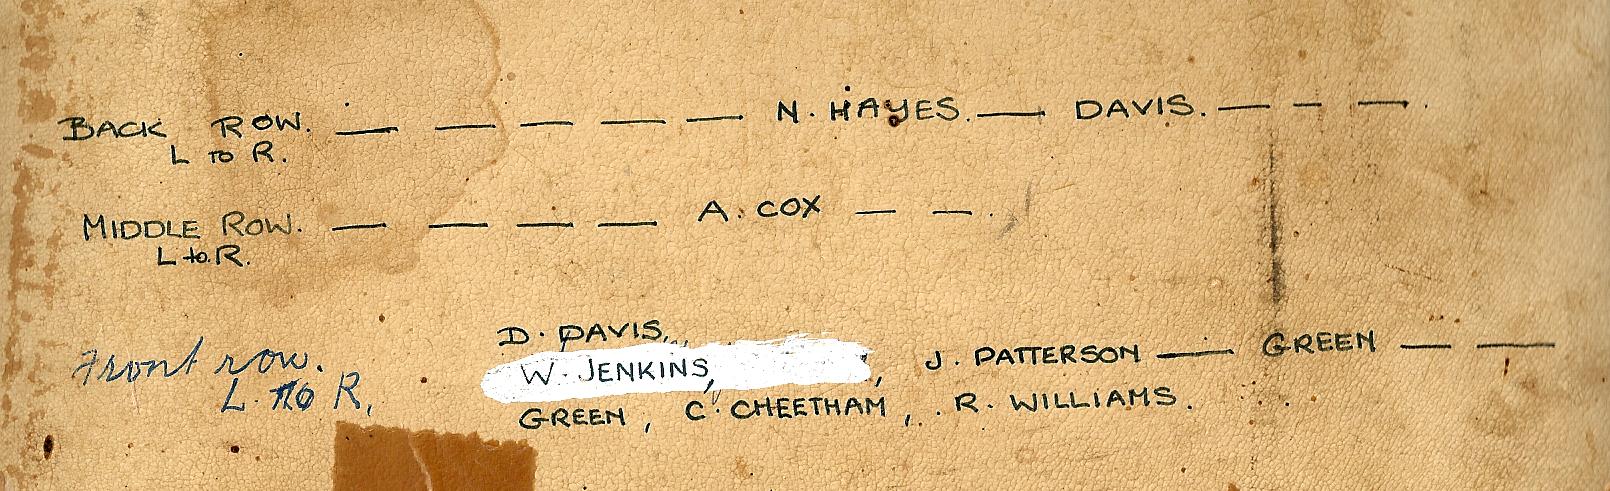 BACK ROW. — — — — — N. HAYES. — DAVIS. — — —.
L TO R.
MIDDLE ROW. — — — — A. COX — —.
L to R.
D. DAVIS,
Front row. W. JENKINS, , J. PATTERSON — GREEN — —
L. TO R, GREEN, C. CHEETHAM, R. WILLIAMS.